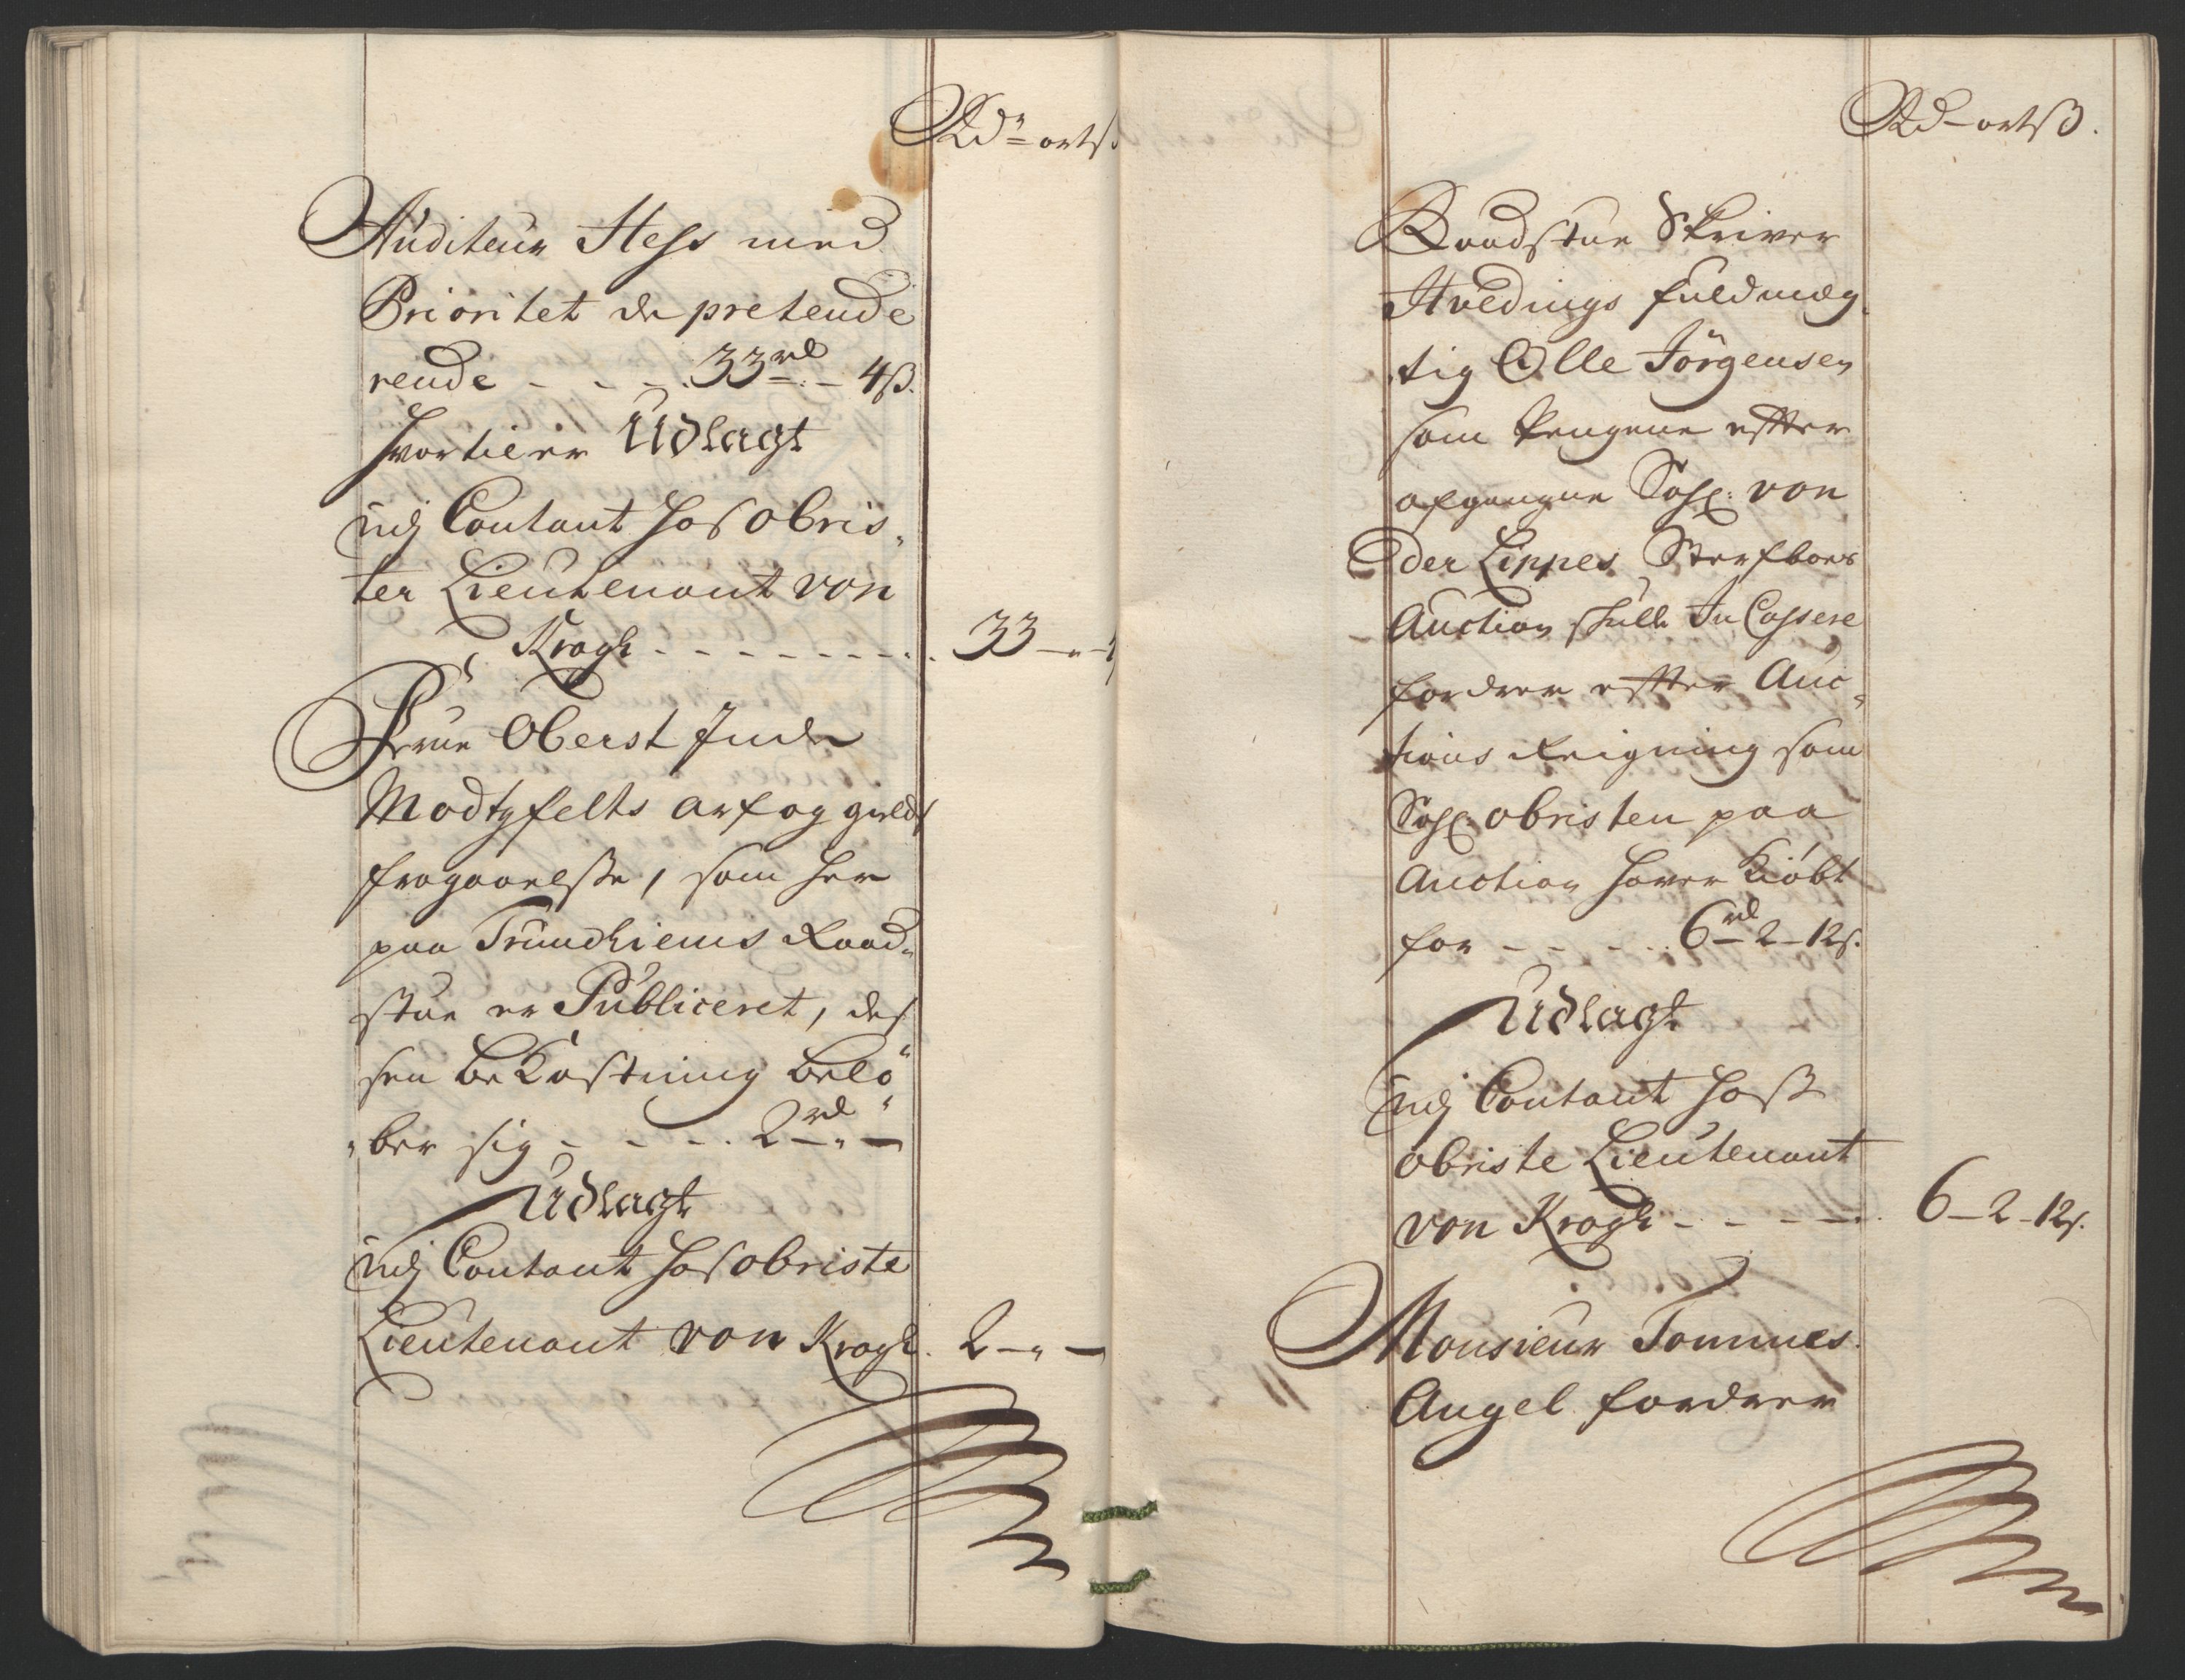 Rdr ort ß
Auditeur Hess med
Prioritet de pretende
rende - - - 33 rd - 4 ß.
hvortil er Udlagt
udj Contant hos obris,
ter Lieutenant von
Krogh - - - - - - - 33 - „ - 4
Frue Oberst Inde
Modtzfelts arf og gields
fragaaelsse, som her
paa Trundhiems Raad„
stue er Publiceret, des
sen beKostning belö„
„ber sig - - - - 2 rd „ -
Udlagt
udj Contant hos obriste
Lieutenant von Krogh. 2 - „ -
Rd - ort ß.
Raadstue Skriver
Hvedings fuldmæg„
tig Olle Jörgensen
som Pengene effter
afgangne Sahl: von
der Lippes Sterfboes
Auction skulle InCassere
fordrer effter Auc„
tions Reigning som
Sahl: obristen paa
Auction haver Kiöbt
for - - - - 6 rd - 2 - 12 s.
Udlagt
udj Contant hoss
obriste Lieutenant
von Krogh - - - - 6 - 2 - 12 s.
Monsieur Tommes
Angel fordrer